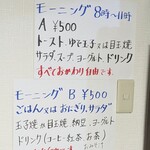 モーニング 8時〜11時
A ¥500
トースト、ゆで玉子又は目玉焼
サラダ、スープ、ヨーグルト ドリンク
すべておかわり自由です。
モーニング B ¥500
ごはん又はおにぎり、サラダ
玉子焼 又は 目玉焼 納豆、ヨーグルト
ドリンク(コーヒー、紅茶、お茶)